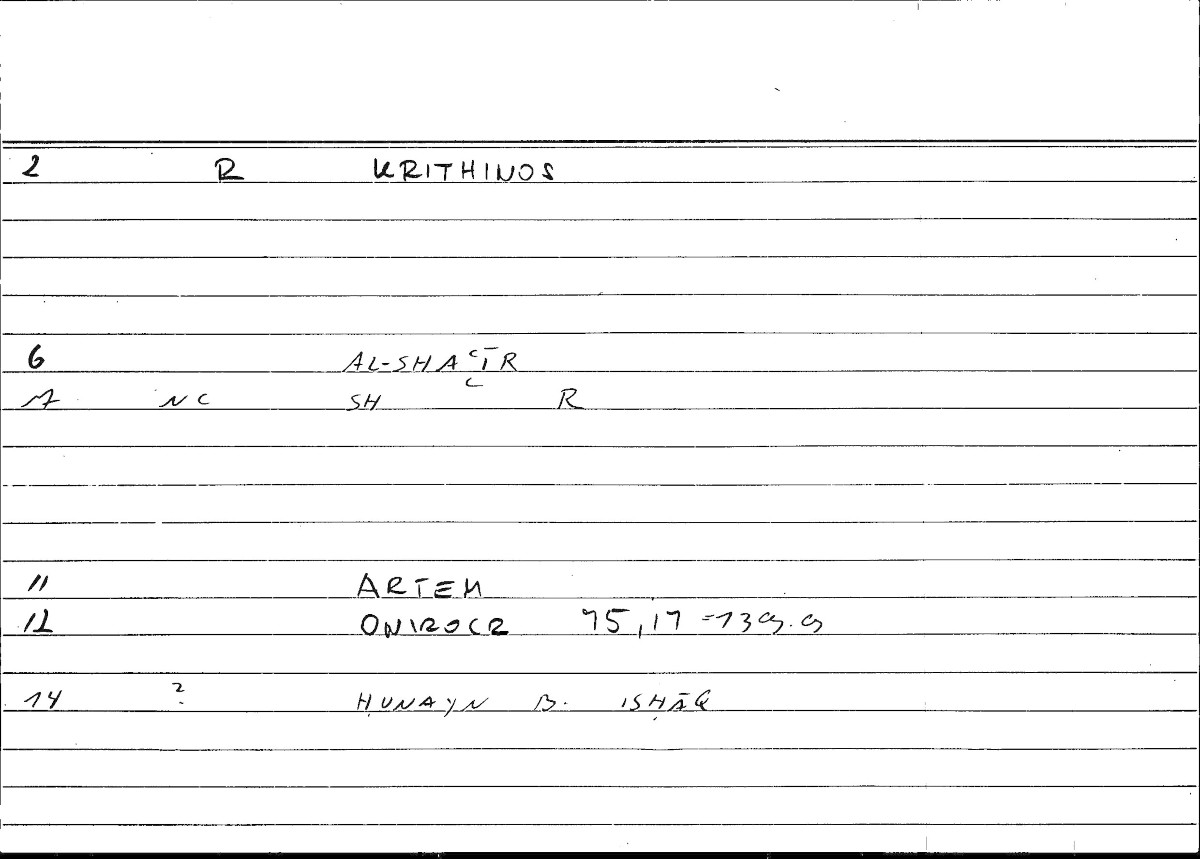 2 R KRITHINOS
6 AL-SHAʿĪR
7 NC SH ʿ R
11 ARTEM
12 ONIROCR 75,17 = 139.9
14 ? ḤUNAYN B. ISḤĀQ